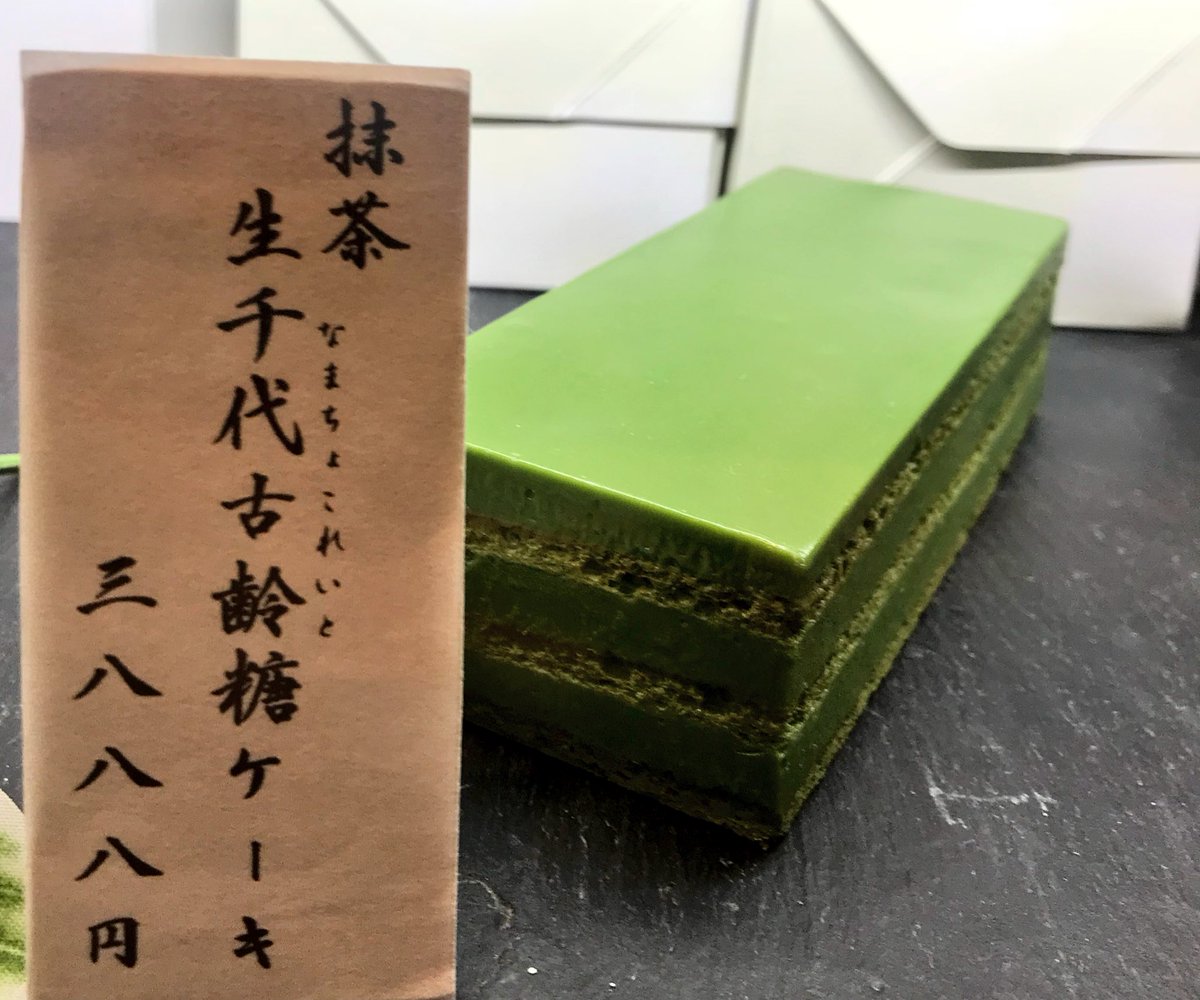 抹茶
なまちょこれいと
生千代古齢糖ケーキ
三八八八円